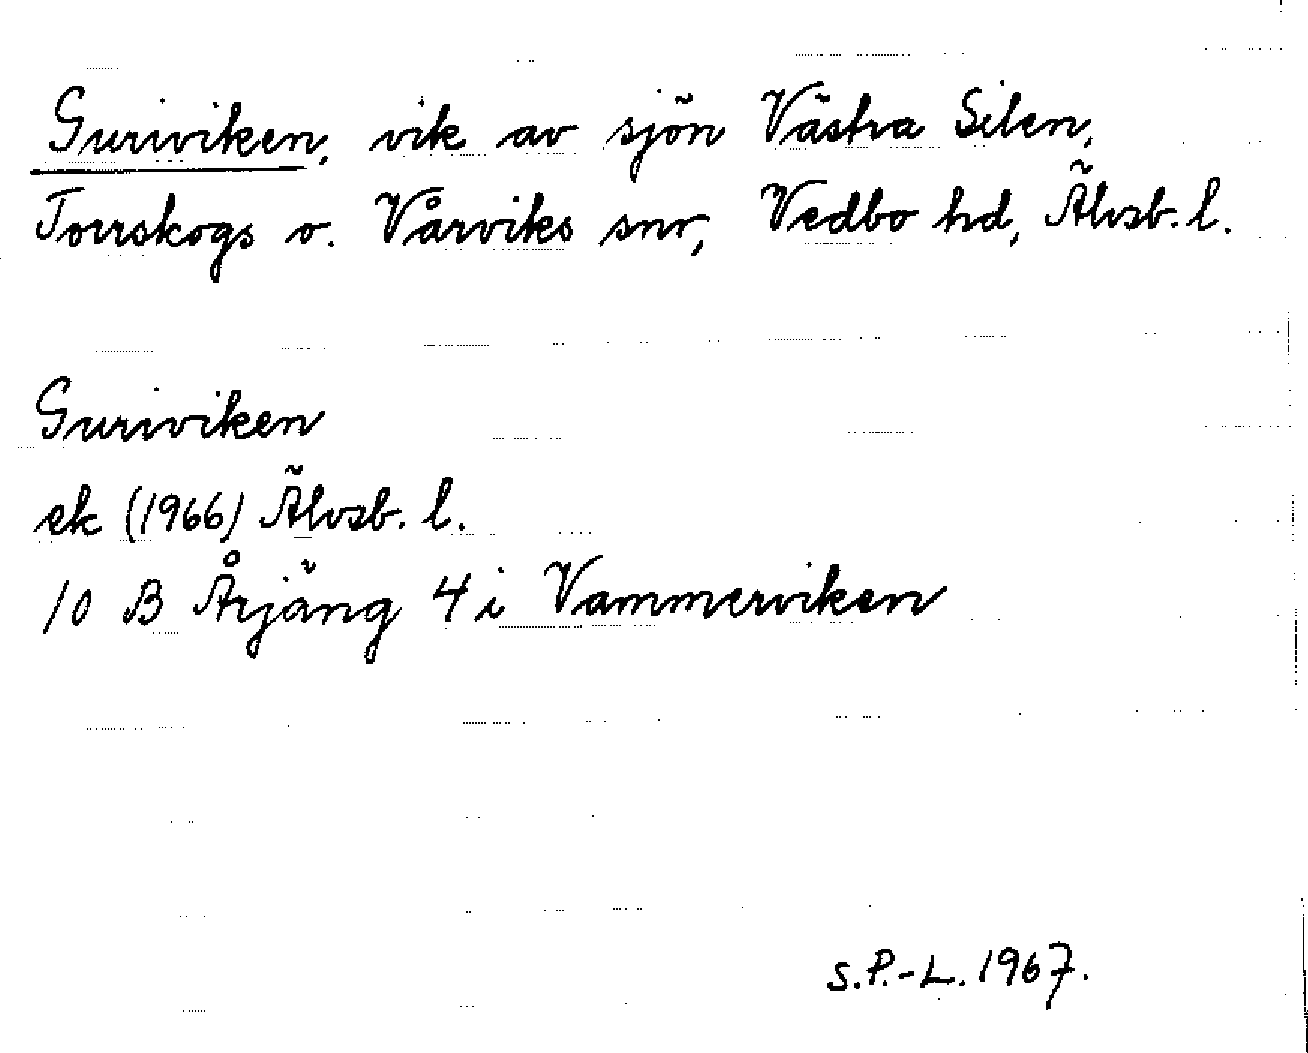 Guriviken, vik av sjön Västra Silen,
Torrskogs o. Vårviks snr, Vedbo hd, Älvsb. l.
Guriviken
ek (1966) Älvsb. l.
10 B Årjäng 4 i Vammerviken
S.P.-L. 1967.